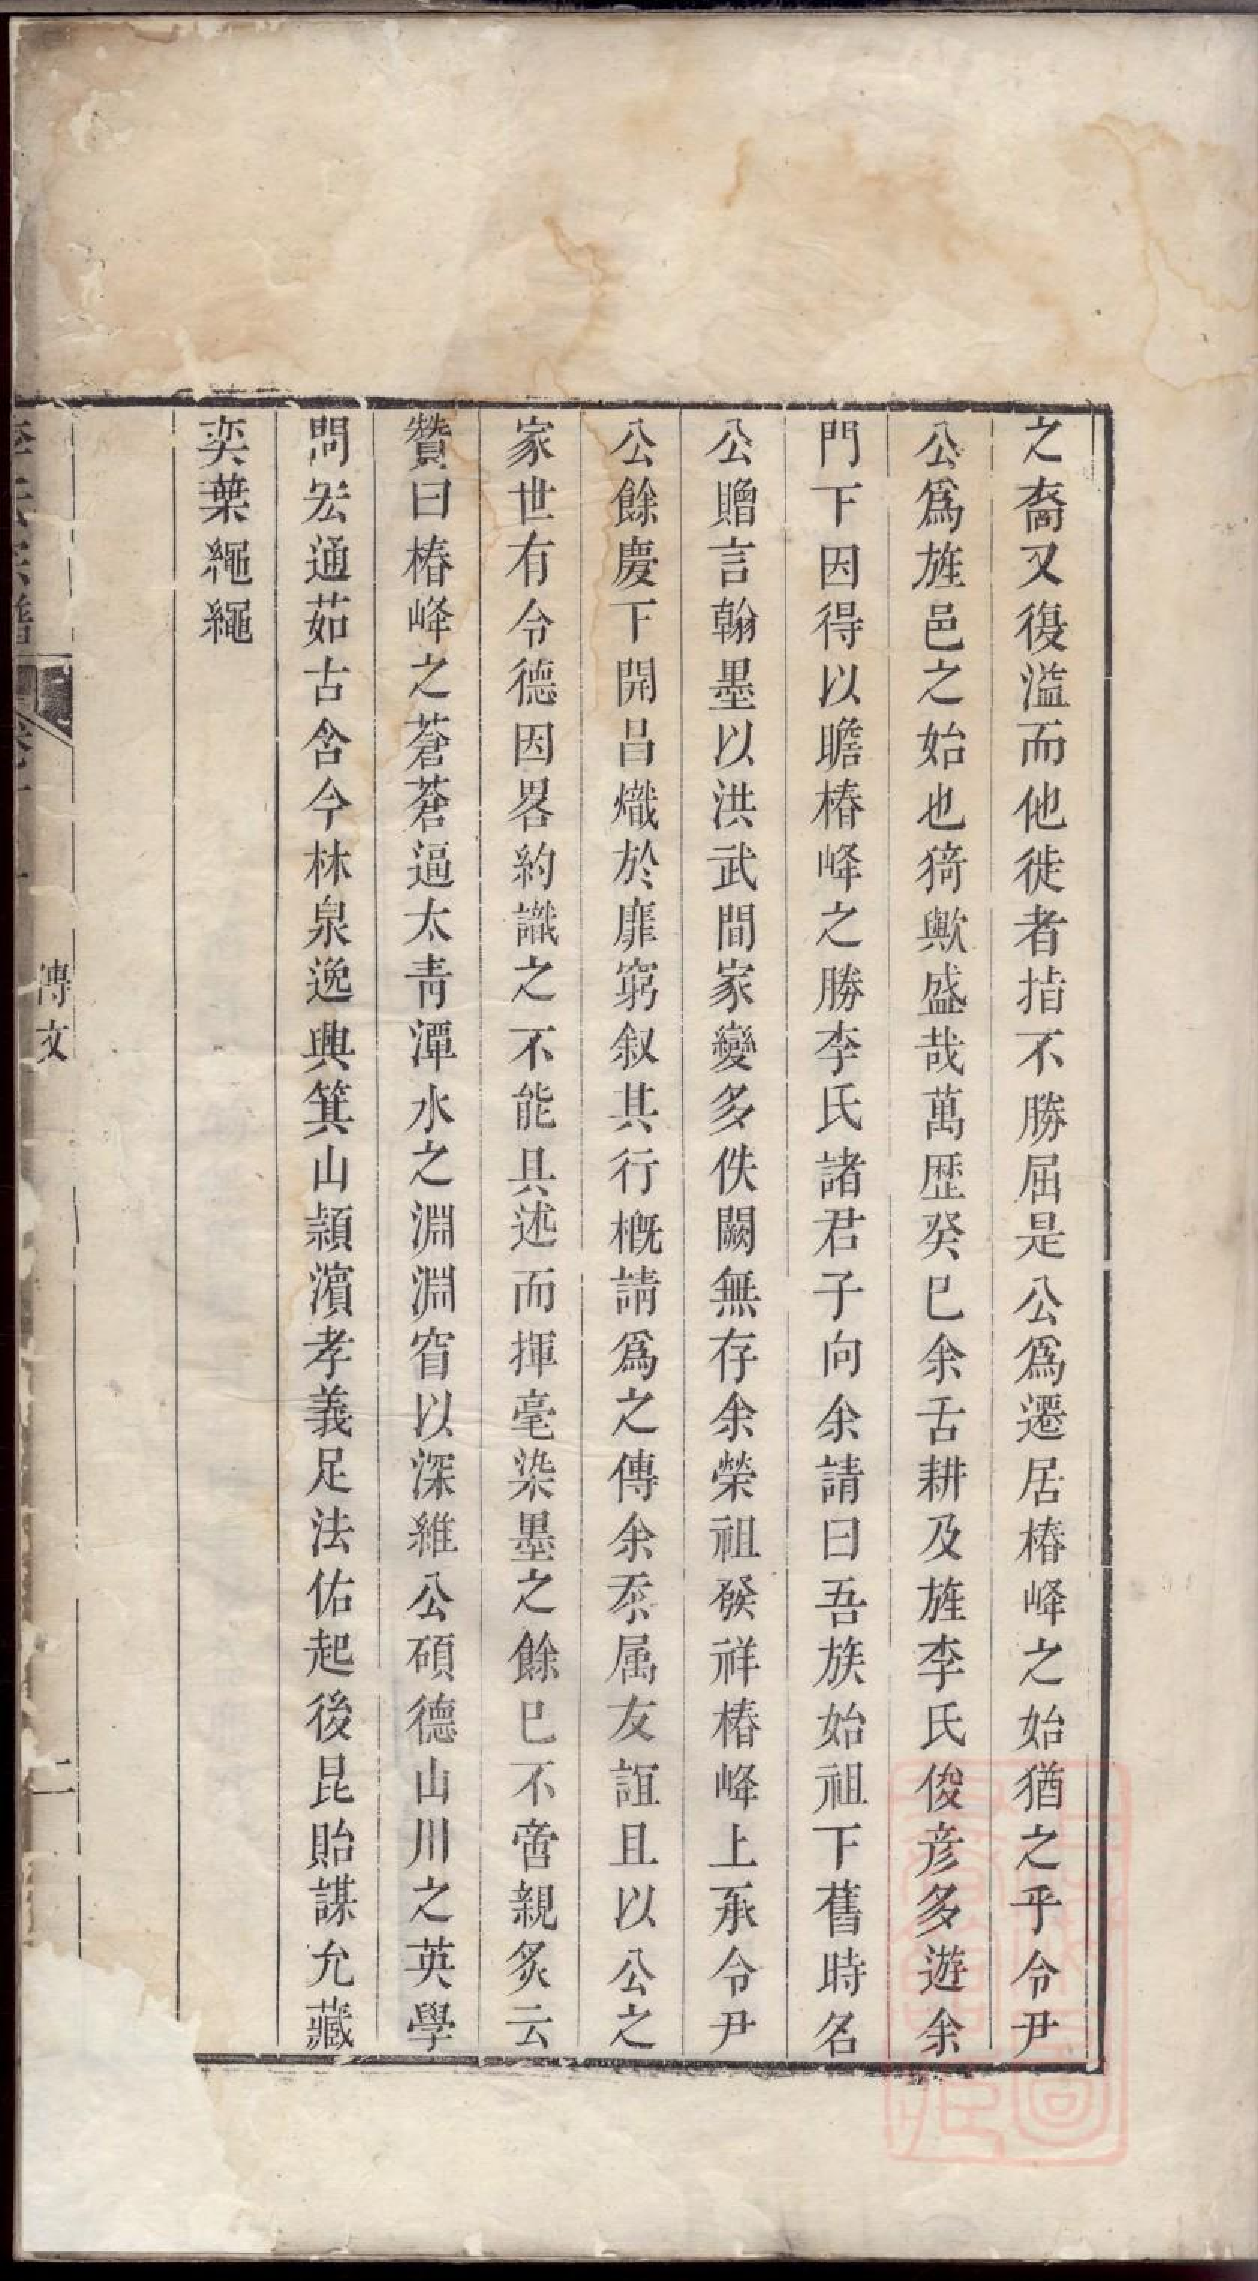 之裔又復溢而他徙者指不勝屈是公爲遷居椿峰之始猶之乎令尹
公爲旌邑之始也猗歟盛哉萬歷癸巳余舌耕及旌李氏俊彦多遊余
門下因得以瞻椿峰之勝李氏諸君子向余請曰吾族始祖下舊時名
公贈言翰墨以洪武間家變多佚闕無存余榮祖發祥椿峰上承令尹
公餘慶下開昌熾於靡窮叙其行槪請爲之傳余忝属友誼且以公之
家世有令德因畧約識之不能具述而揮毫染墨之餘已不啻親炙云
贊曰椿峰之蒼蒼逼太青潭水之淵淵窅以深維公碩德山川之英學
問宏通茹古含今林泉逸興箕山潁濱孝義足法佑起後昆貽謀允藏
奕葉繩繩
傳文
二